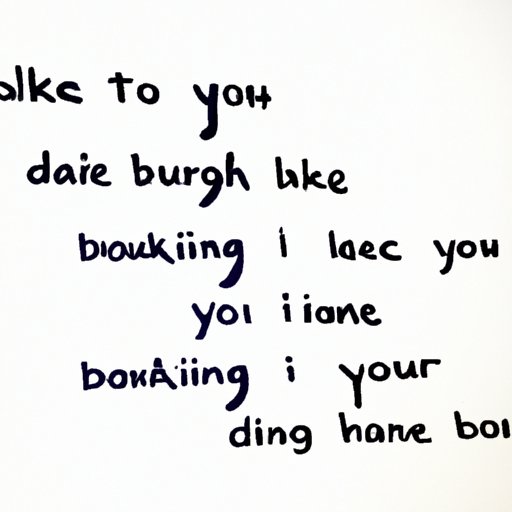 alkc to you
daie burgh like
boukiing i laec you
you i iane
boking i your
ding hane boi